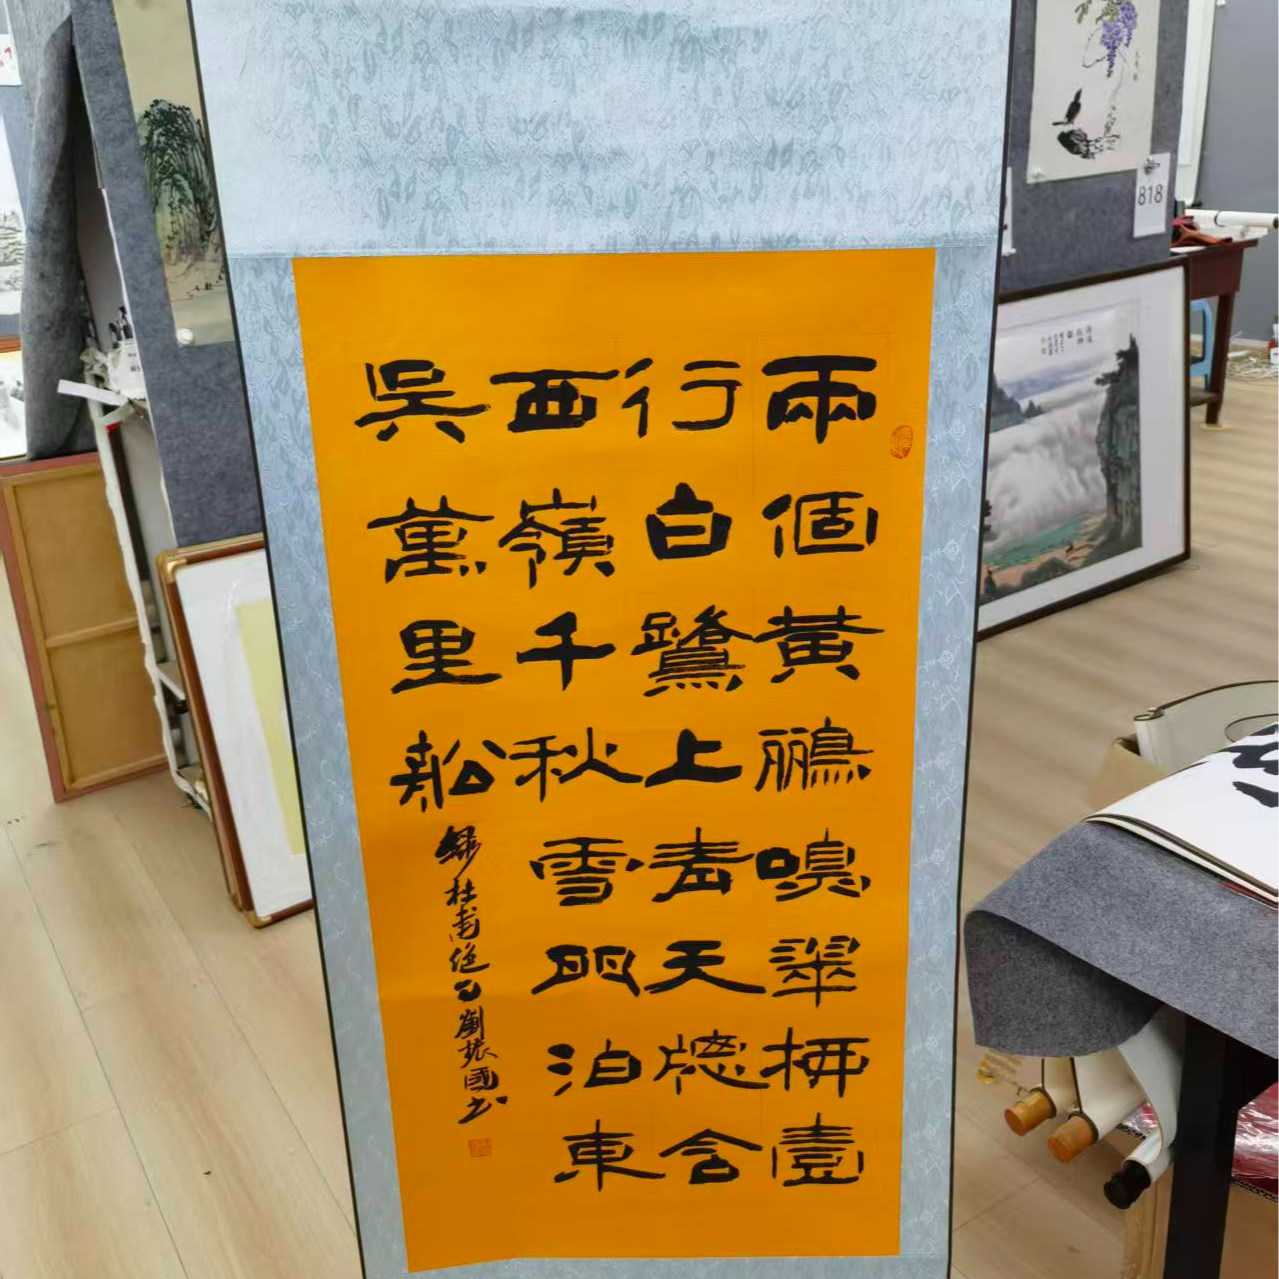 兩個黃鸝鳴翠柳壹
行白鷺上青天牕含
西嶺千秋雪門泊東
吳萬里船
錄杜甫絕句劉振國书
818